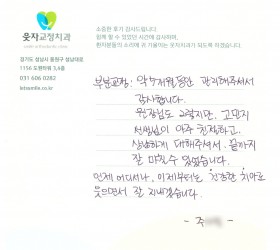 웃자교정치과
소중한 후기 감사드립니다.
함께 할 수 있었던 시간에 감사하며,
환자분들의 소리에 귀 기울이는 웃자교정치과가 되도록 하겠습니다.
경기도 성남시 중원구 성남대로
1156 도원타워 3,4층
031 606 0282
letssmile.co.kr
부분교정, 약 4개월동안 관리해주셔서
감사합니다.
원장님도 그렇지만, 고민지
선생님이 아주 친절하고,
상냥하게 대해주셔서, 끝까지
잘 마칠 수 있었습니다.
언제 어디서나, 이제부터는 건강한 치아로
웃으면서 잘 지내겠습니다.
- 주